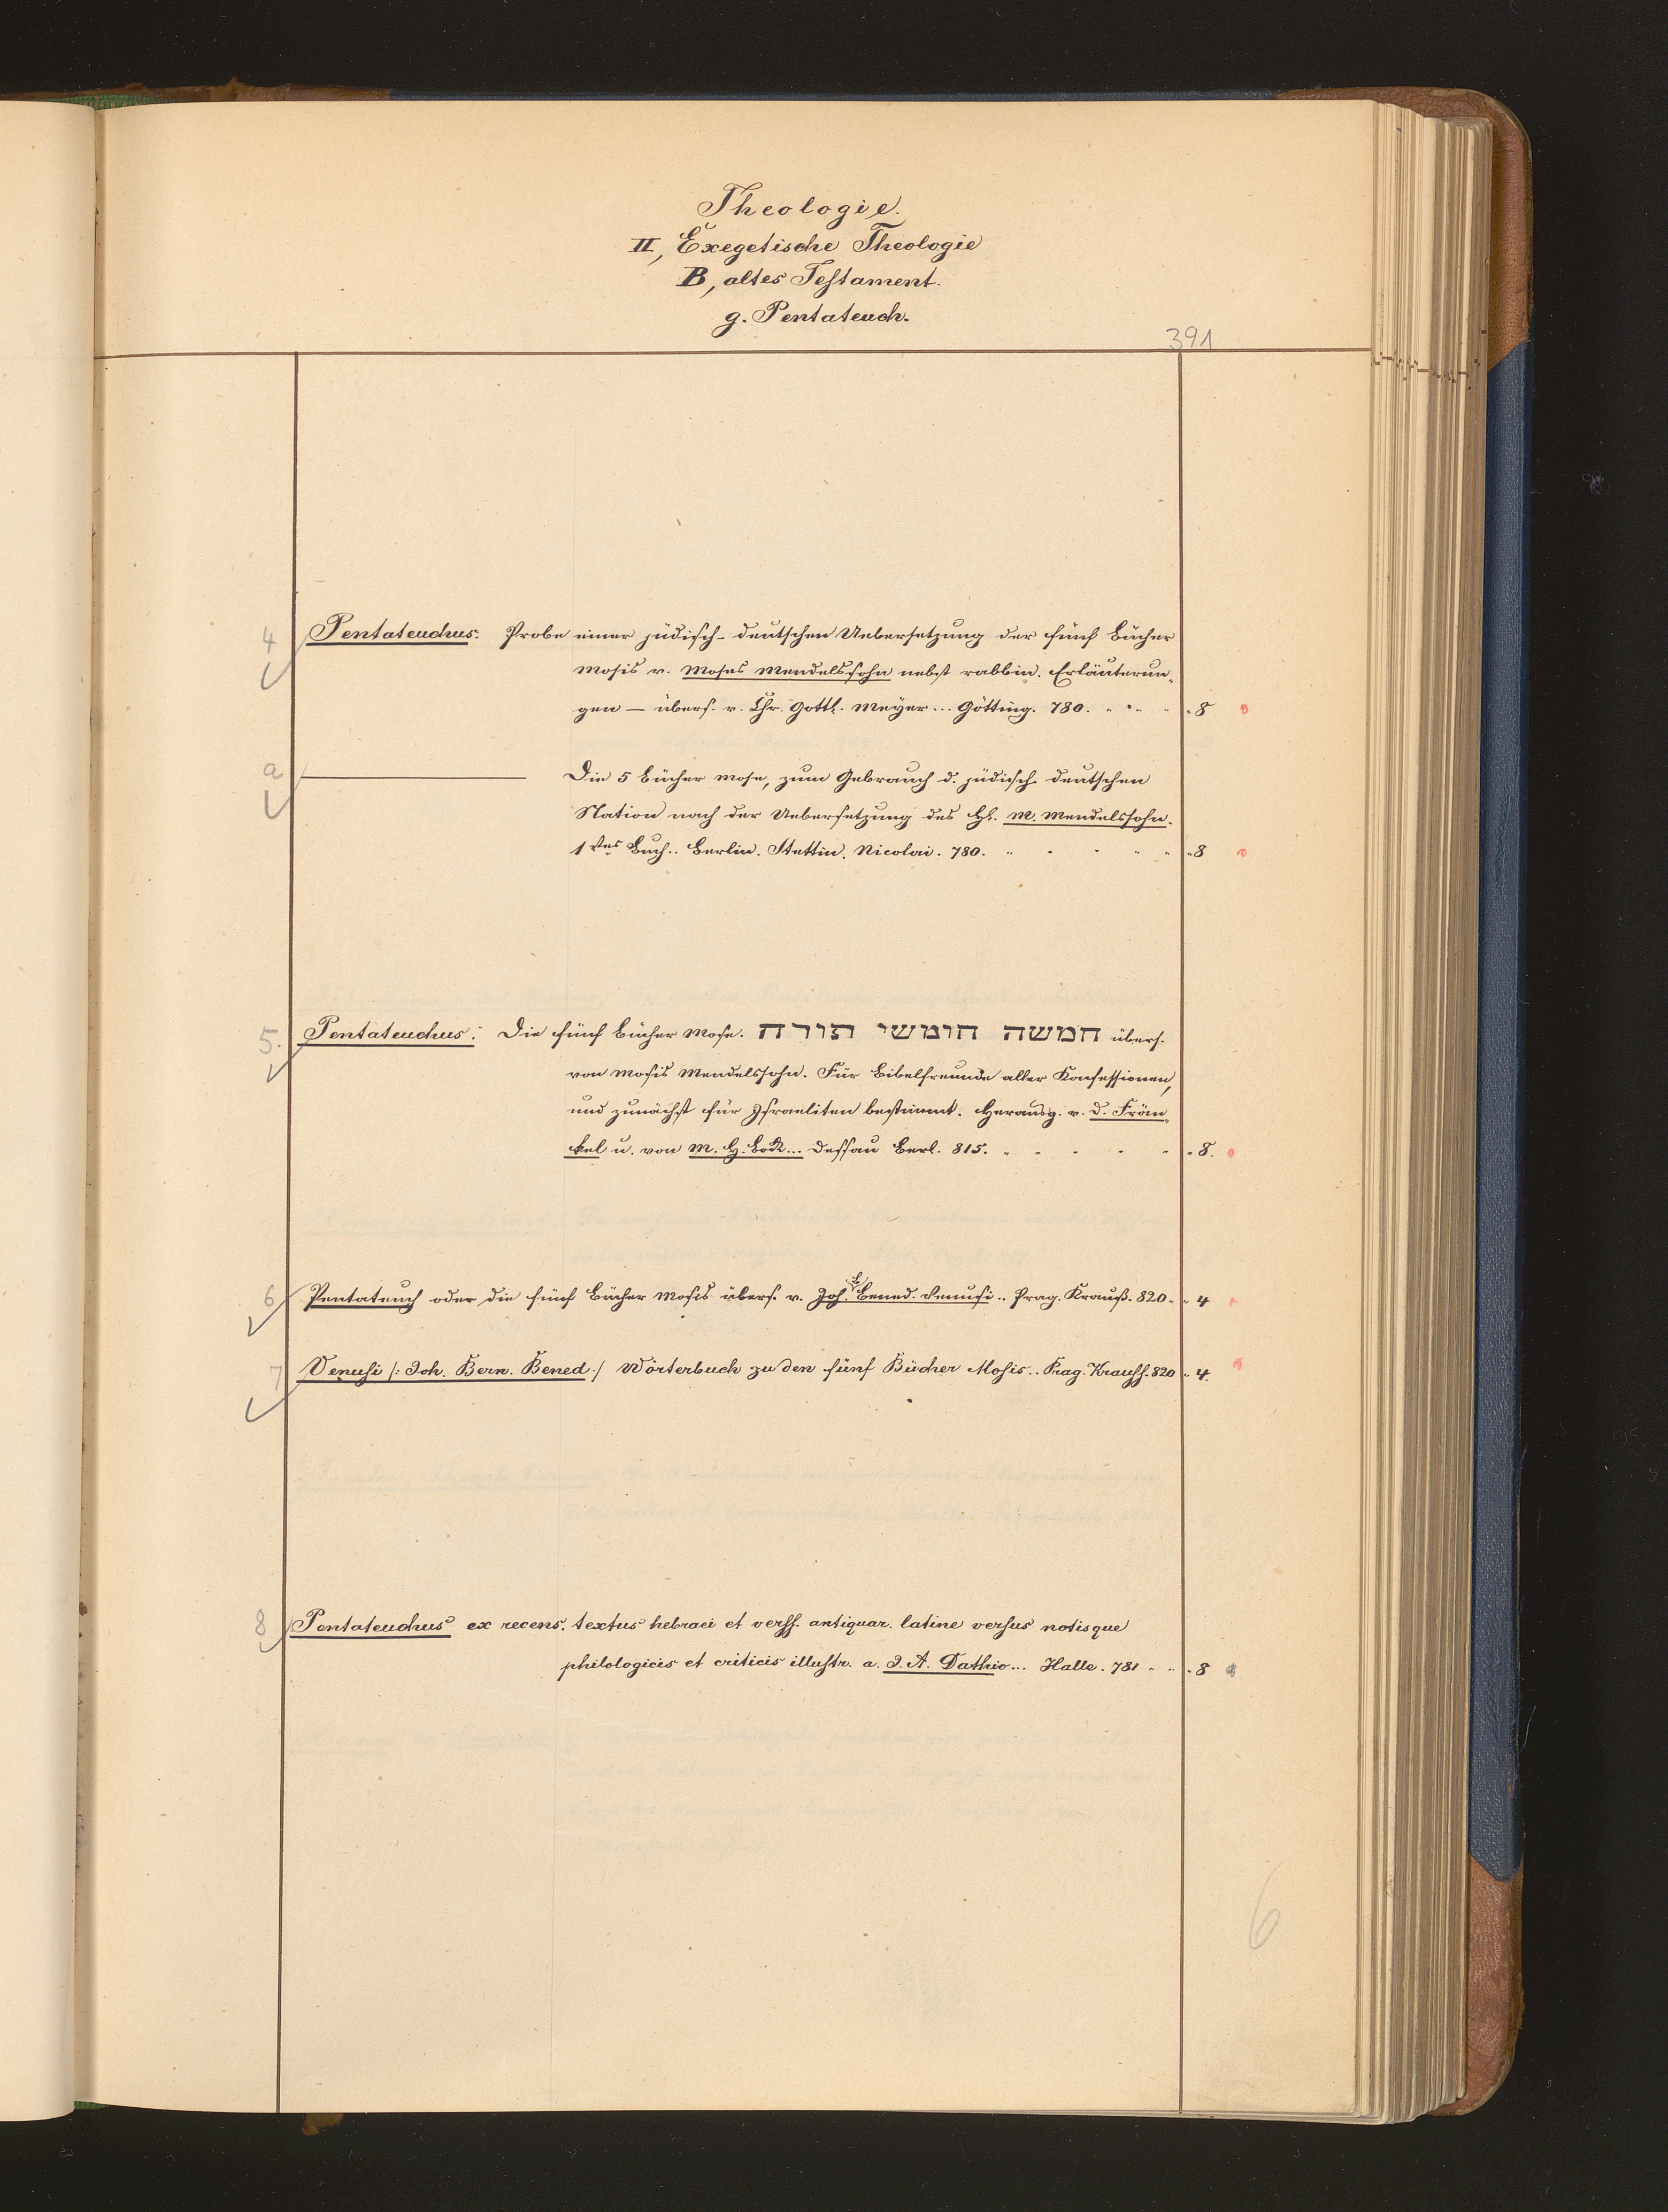 Theologie.
II, Exegetische Theologie
B, altes Testament.
g. Pentateuch.
391
4 Pentateuchus: Probe einer jüdisch-deutschen Uebersetzung der fünf Bücher
Mosis v. Moses Mendelssohn nebst rabbin. Erläuterun-
gen — übers. v. Chr. Gottl. Meyer... Götting. 780. 8
a ——— Die 5 Bücher Mose, zum Gebrauch d. jüdisch deutschen
Nation nach der Uebersetzung des H. M. Mendelssohn.
1tes Buch.. Berlin. Stettin. Nicolai. 780. 8
5. Pentateuchus: Die fünf Bücher Mose. חמשה חומשי תורה übers.
von Mosis Mendelssohn. Für Bibelfreunde aller Konfessionen,
und zunächst für Israeliten bestimmt. Herausg. v. D. Frän-
kel u. von M. H. Bock... Dessau Berl. 815. 8.
6 Pentateuch oder die fünf Bücher Mosis übers. v. Joh. B. Bened. Venusi.. Prag. Krauß. 820. 4
7 Venusi /: Joh. Bern. Bened :/ Wörterbuch zu den fünf Bücher Mosis.. Prag. Krauss. 820 4.
8 Pentateuchus ex recens. textus hebraei et verss. antiquar. latine versus notisque
philologicis et criticis illustr. a. J. A. Dathio... Halle. 781 8
6